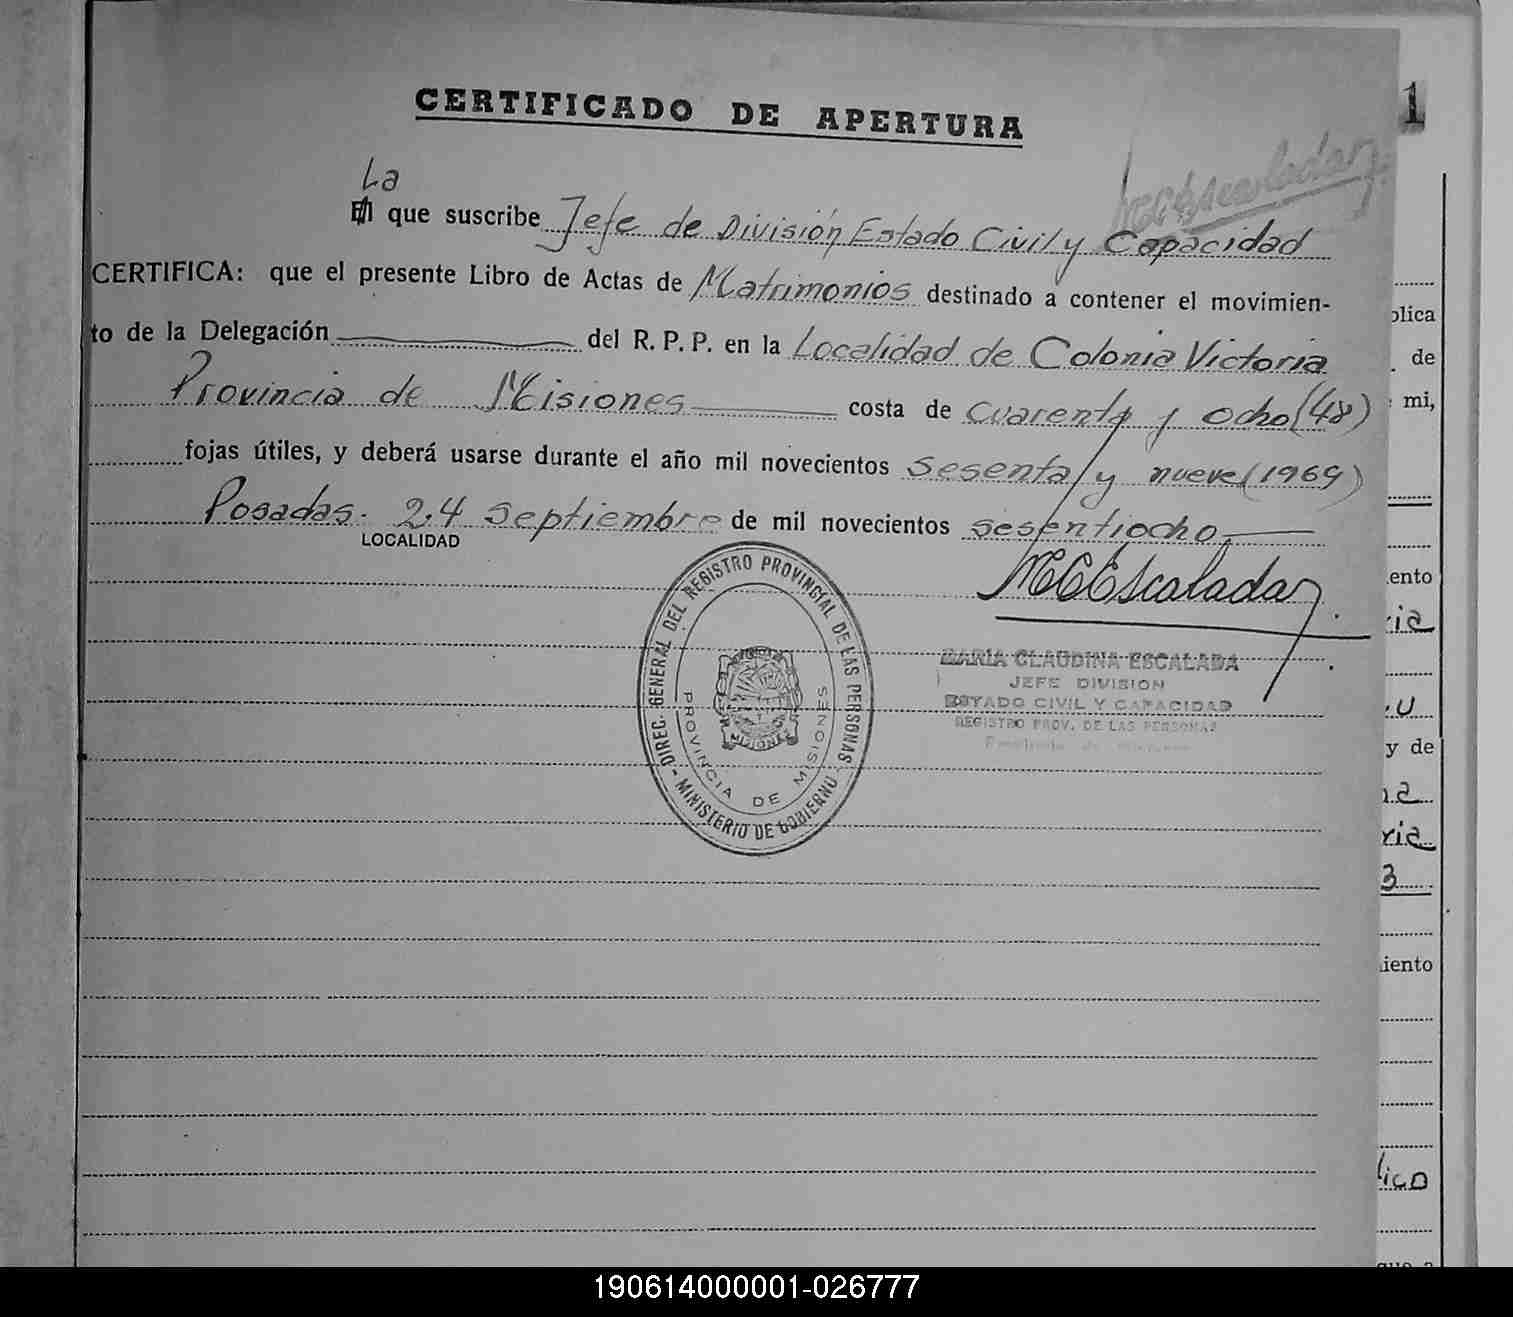 CERTIFICADO DE APERTURA
1
La
El que suscribe Jefe de División Estado Civil y Capacidad
CERTIFICA: que el presente Libro de Actas de Matrimonios destinado a contener el movimien-
to de la Delegación del R. P. P. en la Localidad de Colonia Victoria
Provincia de Misiones costa de cuarenta y ocho (48)
fojas útiles, y deberá usarse durante el año mil novecientos sesenta y nueve (1969)
Posadas. 24 septiembre de mil novecientos sesentiocho.
LOCALIDAD
MCEscalada
MARIA CLAUDINA ESCALADA
JEFE DIVISION
ESTADO CIVIL Y CAPACIDAD
REGISTRO PROV. DE LAS PERSONAS
DIREC. GENERAL DEL REGISTRO PROVINCIAL DE LAS PERSONAS - MINISTERIO DE GOBIERNO -
PROVINCIA DE MISIONES
MISIONES
blica
de
mi,
ento
ria
u
y de
na
ria
3
iento
lico
190614000001-026777